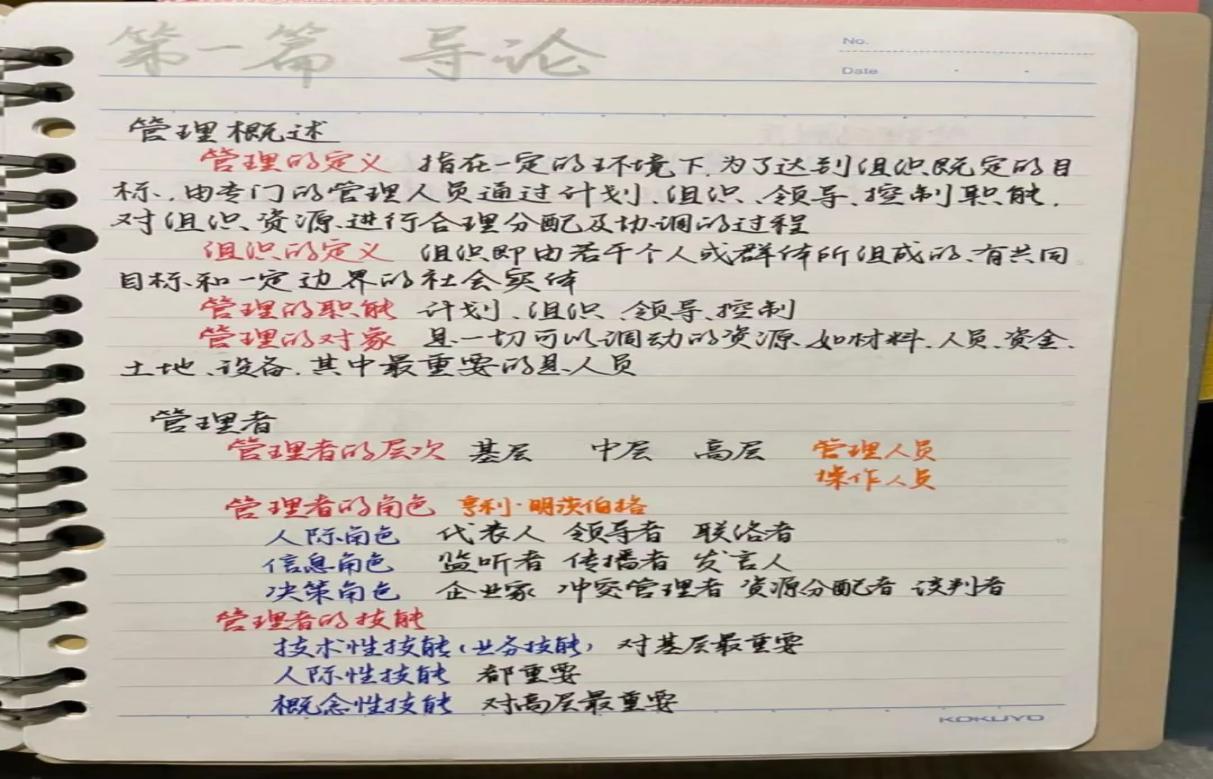 第一篇 导论
No.
Date
管理概述
管理的定义 指在一定的环境下,为了达到组织既定的目
标,由专门的管理人员通过计划、组织、领导、控制职能,
对组织资源进行合理分配及协调的过程
组织的定义 组织即由若干个人或群体所组成的、有共同
目标和一定边界的社会实体
管理的职能 计划、组织、领导、控制
管理的对象 是一切可以调动的资源、如材料、人员、资金、
土地、设备,其中最重要的是人员
管理者
管理者的层次 基层 中层 高层 管理人员
操作人员
管理者的角色 亨利·明茨伯格
人际角色 代表人 领导者 联络者
信息角色 监听者 传播者 发言人
决策角色 企业家 冲突管理者 资源分配者 谈判者
管理者的技能
技术性技能(业务技能) 对基层最重要
人际性技能 都重要
概念性技能 对高层最重要
KOKUYO